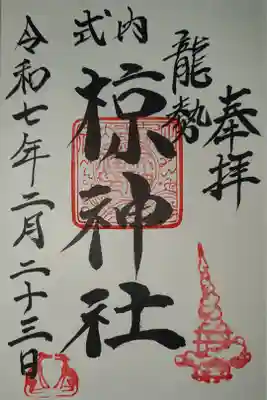 奉拝
龍勢
式内
椋神社
令和七年二月二十三日